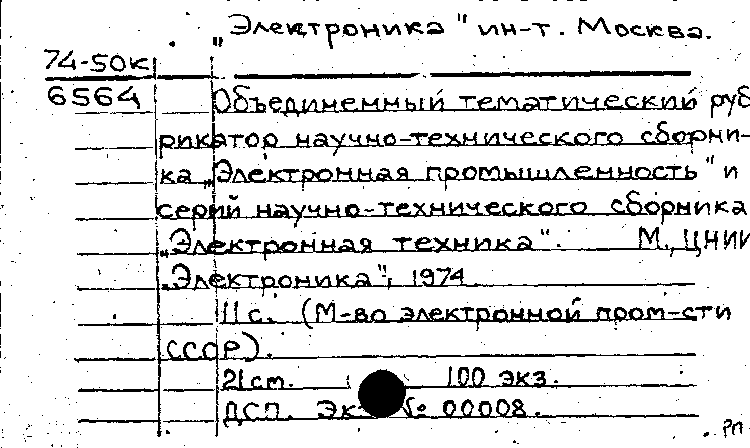 „Электроника" ин-т. Москва.
74-50к
6564 Объединенный тематический руб
рикатор научно-технического сборни-
ка „Электронная промышленность" и
серий научно-технического сборника
„Электронная техника". М., ЦНИИ
„Электроника", 1974.
11 с. (М-во электронной пром-сти
СССР).
21 см. 100 экз.
ДСП. Эк № 00008.
РП